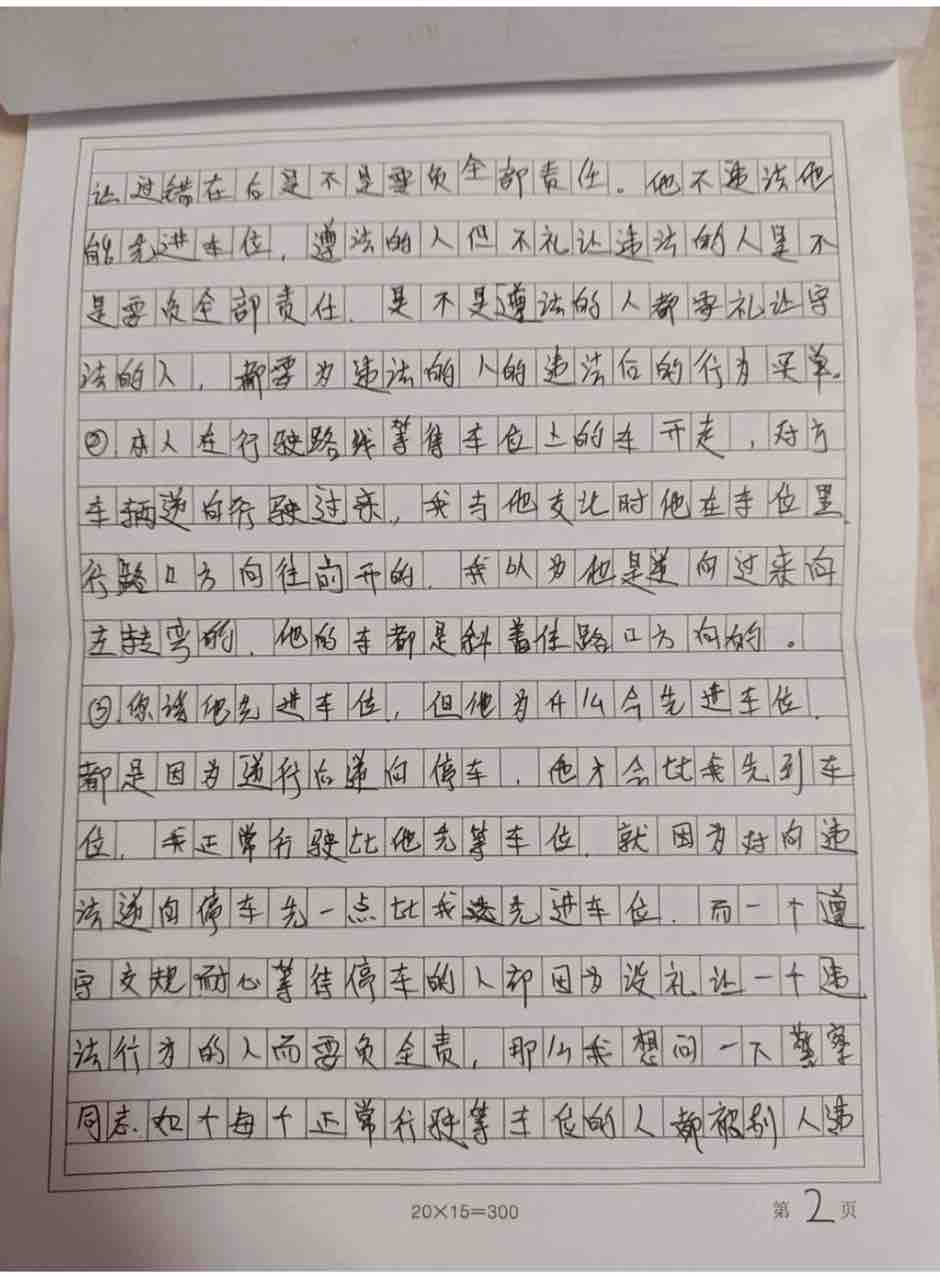 让过错在后是不是要负全部责任。他不违法他
能先进车位，遵法的人但不礼让违法的人是不
是要负全部责任．是不是遵法的人都要礼让守
法的人，都要为违法的人的违法后的行为买单．
②本人在行驶路线等待车位上的车开走，对方
车辆逆向行驶过来，我与他交比时他在车位里
行路口方向往前开的．我以为他是逆向过来向
左转弯的．他的车都是斜着往路口方向的。
③你说他先进车位，但他为什么会先进车位．
都是因为逆行后逆向停车．他才会比我先到车
位．我正常行驶比他先等车位．就因为对向违
法逆向停车先一点比我先进车位．而一个遵
守交规耐心等待停车的人却因为没礼让一个违
法行为的人而要负全责，那么我想问一下警察
同志．如个每个正常行驶等车位的人都被别人违
20×15=300
第2页